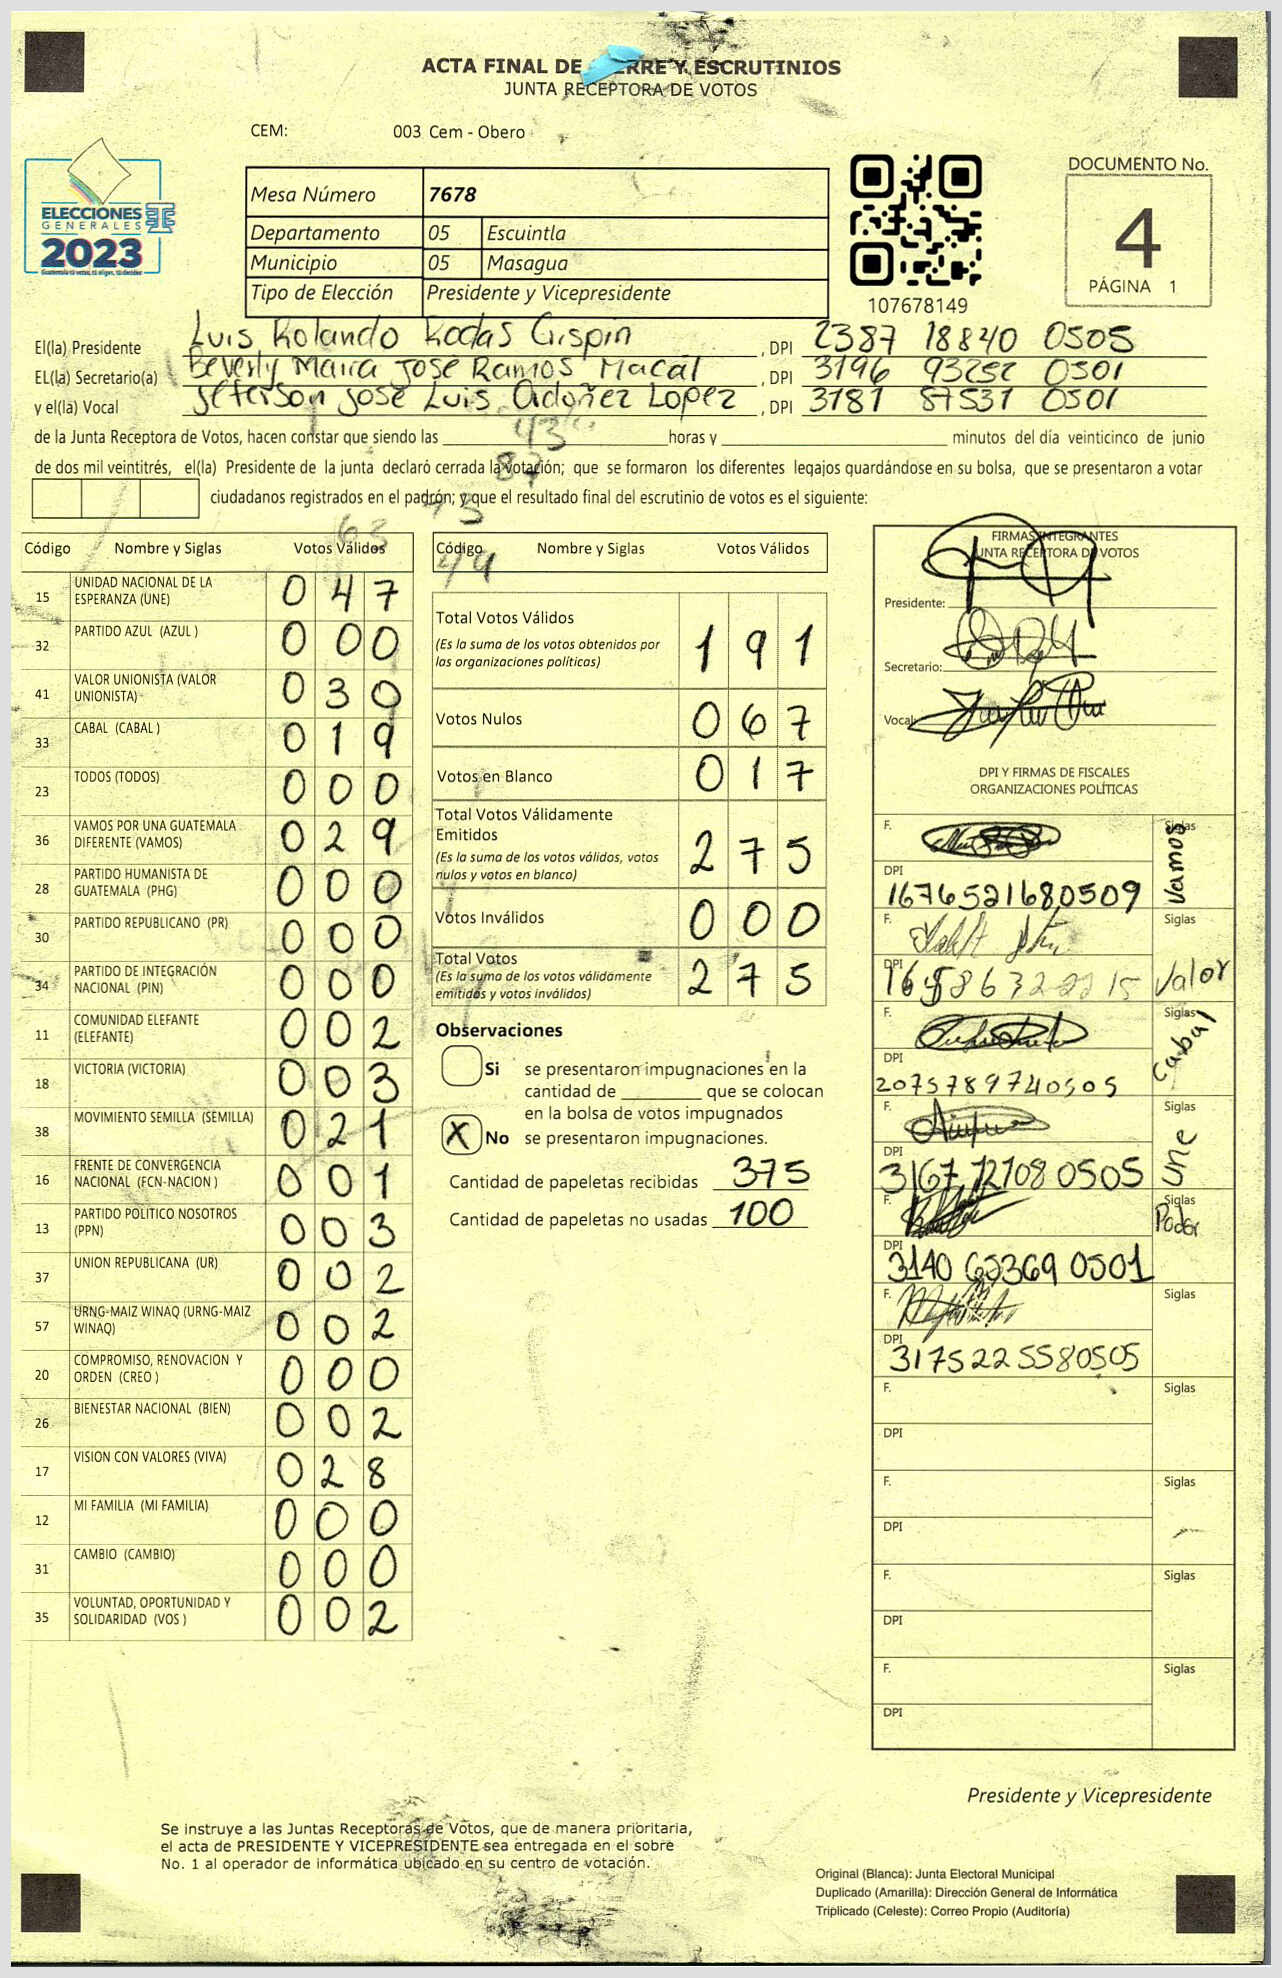 ACTA FINAL DE CIERRE Y ESCRUTINIOS
JUNTA RECEPTORA DE VOTOS
CEM: 003 Cem - Obero
ELECCIONES
GENERALES
2023
Mesa Número 7678
Departamento 05 Escuintla
Municipio 05 Masagua
Tipo de Elección Presidente y Vicepresidente
107678149
DOCUMENTO No.
4
PÁGINA 1
El(la) Presidente Luis Rolando Rodas Crispin , DPI 2387 18840 0505
EL(la) Secretario(a) Beverly Maria Jose Ramos Macal , DPI 3196 93252 0501
y el(la) Vocal Jeferson Jose Luis Ordoñez Lopez , DPI 3181 87531 0501
de la Junta Receptora de Votos, hacen constar que siendo las horas y minutos del día veinticinco de junio
de dos mil veintitrés, el(la) Presidente de la junta declaró cerrada la votación; que se formaron los diferentes legajos guardándose en su bolsa, que se presentaron a votar
ciudadanos registrados en el padrón; y que el resultado final del escrutinio de votos es el siguiente:
Código Nombre y Siglas Votos Válidos
15 UNIDAD NACIONAL DE LA ESPERANZA (UNE) 0 4 7
32 PARTIDO AZUL (AZUL ) 0 0 0
41 VALOR UNIONISTA (VALOR UNIONISTA) 0 3 0
33 CABAL (CABAL ) 0 1 9
23 TODOS (TODOS) 0 0 0
36 VAMOS POR UNA GUATEMALA DIFERENTE (VAMOS) 0 2 9
28 PARTIDO HUMANISTA DE GUATEMALA (PHG) 0 0 0
30 PARTIDO REPUBLICANO (PR) 0 0 0
34 PARTIDO DE INTEGRACIÓN NACIONAL (PIN) 0 0 0
11 COMUNIDAD ELEFANTE (ELEFANTE) 0 0 2
18 VICTORIA (VICTORIA) 0 0 3
38 MOVIMIENTO SEMILLA (SEMILLA) 0 2 1
16 FRENTE DE CONVERGENCIA NACIONAL (FCN-NACION ) 0 0 1
13 PARTIDO POLITICO NOSOTROS (PPN) 0 0 3
37 UNION REPUBLICANA (UR) 0 0 2
57 URNG-MAIZ WINAQ (URNG-MAIZ WINAQ) 0 0 2
20 COMPROMISO, RENOVACION Y ORDEN (CREO ) 0 0 0
26 BIENESTAR NACIONAL (BIEN) 0 0 2
17 VISION CON VALORES (VIVA) 0 2 8
12 MI FAMILIA (MI FAMILIA) 0 0 0
31 CAMBIO (CAMBIO) 0 0 0
35 VOLUNTAD, OPORTUNIDAD Y SOLIDARIDAD (VOS ) 0 0 2
Código Nombre y Siglas Votos Válidos
Total Votos Válidos 1 9 1
(Es la suma de los votos obtenidos por
las organizaciones políticas)
Votos Nulos 0 6 7
Votos en Blanco 0 1 7
Total Votos Válidamente
Emitidos 2 7 5
(Es la suma de los votos válidos, votos
nulos y votos en blanco)
Votos Inválidos 0 0 0
Total Votos 2 7 5
(Es la suma de los votos válidamente
emitidos y votos inválidos)
Observaciones
Si se presentaron impugnaciones en la
cantidad de que se colocan
en la bolsa de votos impugnados
X No se presentaron impugnaciones.
Cantidad de papeletas recibidas 375
Cantidad de papeletas no usadas 100
FIRMAS INTEGRANTES
JUNTA RECEPTORA DE VOTOS
Presidente:
Secretario:
Vocal:
DPI Y FIRMAS DE FISCALES
ORGANIZACIONES POLÍTICAS
F. Siglas Vamos
DPI 1676521680509
F. Siglas Valor
DPI
F. Siglas Cabal
DPI 2075789740505
F. Siglas Une
DPI 3167 72708 0505
F. Siglas Poder
DPI 3140 0501
F. Siglas
DPI 3175225580505
F. Siglas
DPI
F. Siglas
DPI
F. Siglas
DPI
F. Siglas
DPI
Presidente y Vicepresidente
Se instruye a las Juntas Receptoras de Votos, que de manera prioritaria,
el acta de PRESIDENTE Y VICEPRESIDENTE sea entregada en el sobre
No. 1 al operador de informática ubicado en su centro de votación.
Original (Blanca): Junta Electoral Municipal
Duplicado (Amarilla): Dirección General de Informática
Triplicado (Celeste): Correo Propio (Auditoría)